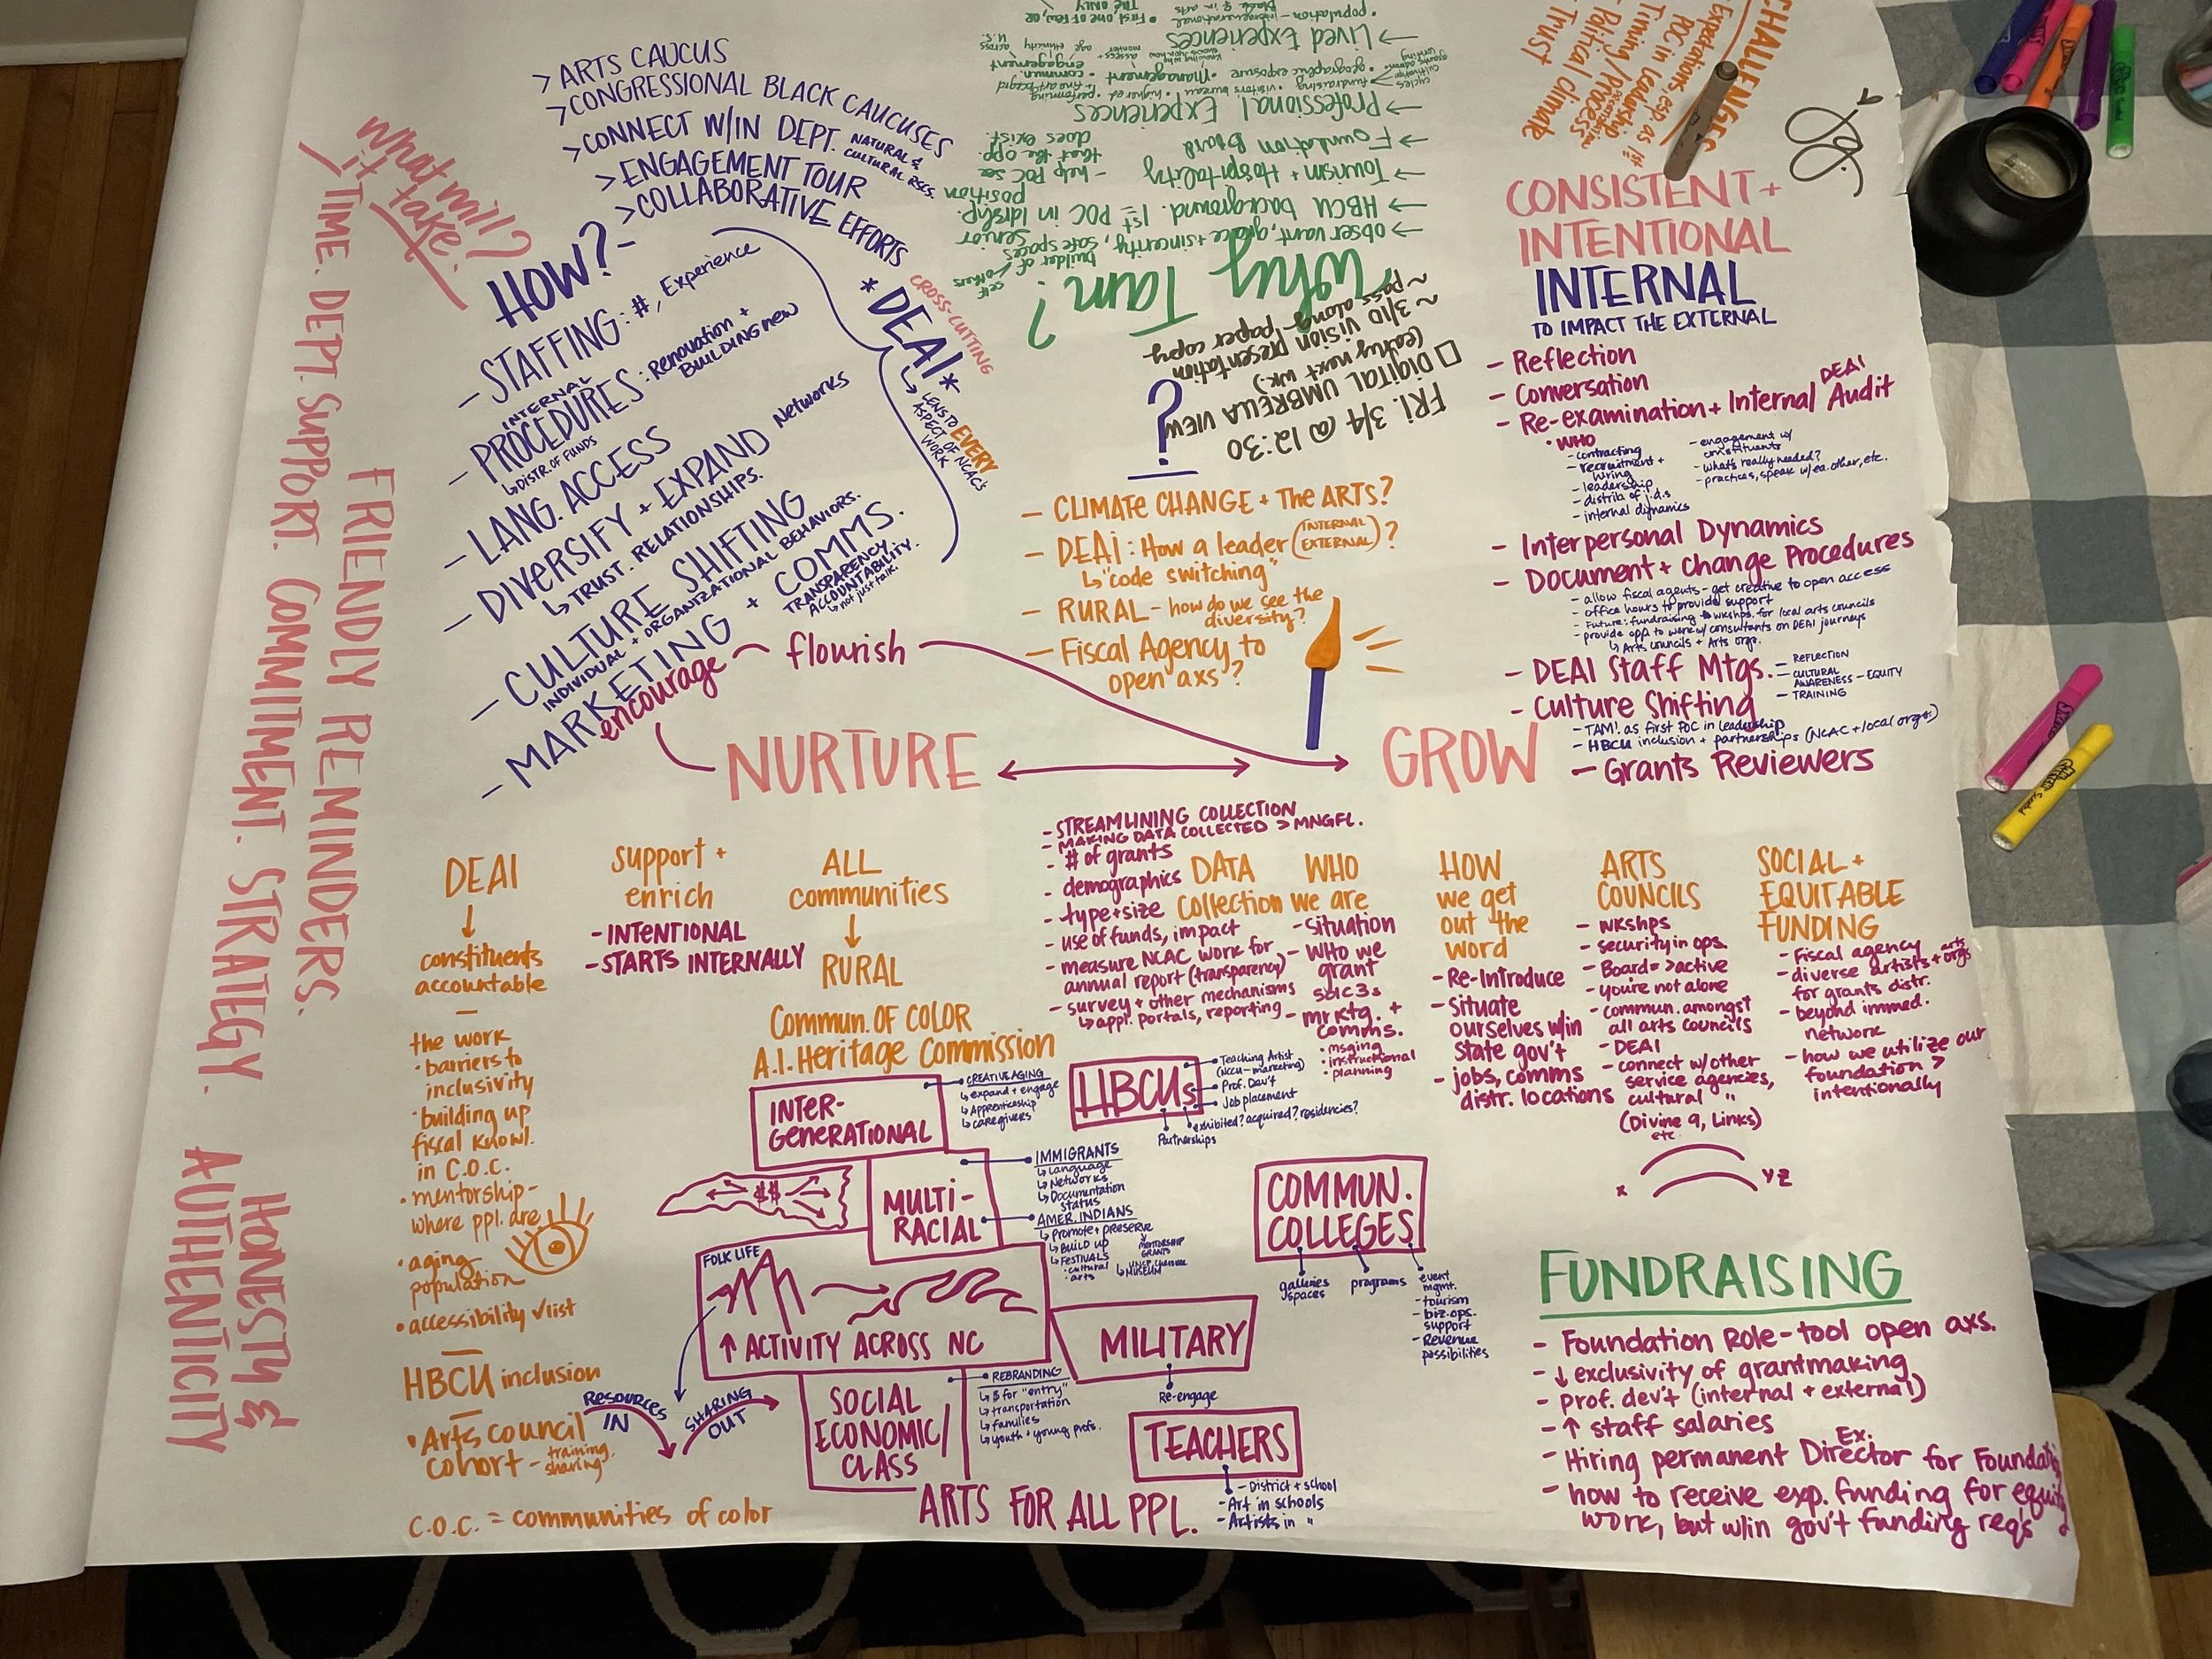 What will
it take?
TIME. DEPT. SUPPORT. COMMITMENT. STRATEGY.
HONESTY &
AUTHENTICITY
FRIENDLY REMINDERS.
HOW?-
> ARTS CAUCUS
> CONGRESSIONAL BLACK CAUCUSES
> CONNECT W/IN DEPT. NATURAL &
CULTURAL RSCS.
> ENGAGEMENT TOUR
> COLLABORATIVE EFFORTS
- STAFFING: #, Experience
INTERNAL
- PROCEDURES: Renovation +
BUILDING new
↳ DISTR. OF FUNDS
- LANG. ACCESS
- DIVERSIFY + EXPAND Networks
↳ TRUST. RELATIONSHIPS.
- CULTURE SHIFTING
INDIVIDUAL + ORGANIZATIONAL BEHAVIORS.
- MARKETING + COMMS.
TRANSPARENCY
ACCOUNTABILITY.
↳ not just talk.
CROSS-CUTTING
* DEAI *
↳ LENS TO EVERY
ASPECT OF NCAC's
WORK
Why Tam?
→ observant, grace + sincerity,
builder of safe spaces
self
others
→ HBCU background. 1st POC in ldrship.
senior
position
→ Tourism + Hospitality
- help POC see
that the opp.
does exist.
→ Foundation Board
→ Professional Experiences
fundraising • visitors bureau • higher ed • performing
+ fine art bckgrd
• geographic exposure • Management • commun.
engagement
→ Lived Experiences
• population - intergenerational
• First one of few, or
THE ONLY
CHALLENGES
- Expectations, esp as 1st
POC in leadership
- Timing/Process
- Political climate
- Trust
FRI. 3/4 @ 12:30
□ DIGITAL UMBRELLA VIEW
(early next wk.)
~ 3/10 vision presentation
~ pass along paper copy
?
- CLIMATE CHANGE + The ARTS?
- DEAI: How a leader (INTERNAL
EXTERNAL)?
↳ "code switching"
- RURAL - how do we see the
diversity?
- Fiscal Agency to
open axs?
CONSISTENT +
INTENTIONAL
INTERNAL
TO IMPACT THE EXTERNAL
- Reflection
- Conversation
DEAI
- Re-examination + Internal Audit
• WHO
- contracting
- recruitment +
hiring
- leadership
- distrib. of j.d.s
- internal dynamics
- engagement w/
constituents
- what's really needed?
- practices, speak w/ ea. other, etc.
- Interpersonal Dynamics
- Document + change Procedures
- allow fiscal agents - get creative to open access
- office hours to provide support
- Future: fundraising wkshps. for local arts councils
- provide opp to work w/ consultants on DEAI journeys
↳ Arts councils + Arts orgs.
- DEAI Staff Mtgs.
- REFLECTION
- CULTURAL
AWARENESS - EQUITY
- TRAINING
- Culture Shifting
- TAM! as first POC in leadership
- HBCU inclusion + partnerships (NCAC + local orgs.)
- Grants Reviewers
encourage ~ flourish
NURTURE
GROW
DEAI
↓
constituents
accountable
—
the work
• barriers to
inclusivity
• building up
fiscal knowl.
in C.O.C.
• mentorship -
where ppl. are
• aging
population
• accessibility ✓list
—
HBCU inclusion
—
• Arts council
cohort - training,
sharing
C.O.C. = communities of color
support +
enrich
- INTENTIONAL
- STARTS INTERNALLY
ALL
communities
↓
RURAL
Commun. OF COLOR
A.I. Heritage Commission
- STREAMLINING COLLECTION
- MAKING DATA COLLECTED > MNGFL.
- # of grants
- demographics
- type + size
- use of funds, impact
- measure NCAC work for
annual report (transparency)
- survey + other mechanisms
↳ appl. portals, reporting
DATA
Collection
WHO
we are
- situation
- WHO we
grant
501c3s
- mrktg. +
comms.
• msging
• instructional
• planning
HOW
we get
out the
word
- Re-Introduce
- Situate
ourselves w/in
State gov't
- jobs, comms
distr. locations
ARTS
COUNCILS
- wkshps
- security in ops.
- Board => active
- you're not alone
- commun. amongst
all arts councils
- DEAI
- connect w/ other
service agencies,
cultural "
(Divine 9, Links)
etc.
x
y z
SOCIAL +
EQUITABLE
FUNDING
- Fiscal agency
- diverse artists + arts orgs
for grants distr.
- beyond immed.
network
- how we utilize our
foundation >
intentionally
INTER-
GENERATIONAL
CREATIVE AGING
↳ expand + engage
↳ Apprenticeship
↳ caregivers
HBCUs
Teaching Artist
(NCCU - marketing)
Prof. Dev't
Job placement
exhibited? acquired? residencies?
Partnerships
$$
MULTI-
RACIAL
IMMIGRANTS
↳ Language
↳ Networks
↳ Documentation
status
AMER. INDIANS
↳ Promote + preserve
↳ Build up
↳ FESTIVALS
• cultural
• arts
MENTORSHIP
GRANTS
MUSEUM
COMMUN.
COLLEGES
galleries
spaces
programs
event
mgmt.
- tourism
- biz ops.
support
- Revenue
possibilities
FOLK LIFE
↑ ACTIVITY ACROSS NC
RESOURCES
IN
SHARING
OUT
MILITARY
Re-engage
SOCIAL
ECONOMIC/
CLASS
REBRANDING
↳ $ for "entry"
↳ transportation
↳ families
↳ youth + young profs.
TEACHERS
- District + school
- Art in schools
- Artists in "
ARTS FOR ALL PPL.
FUNDRAISING
- Foundation Role - tool open axs.
- ↓ exclusivity of grantmaking
- prof. dev't (internal + external)
- ↑ staff salaries
- Hiring permanent Ex. Director for Foundati
- how to receive exp. funding for equity
work, but w/in gov't funding req's